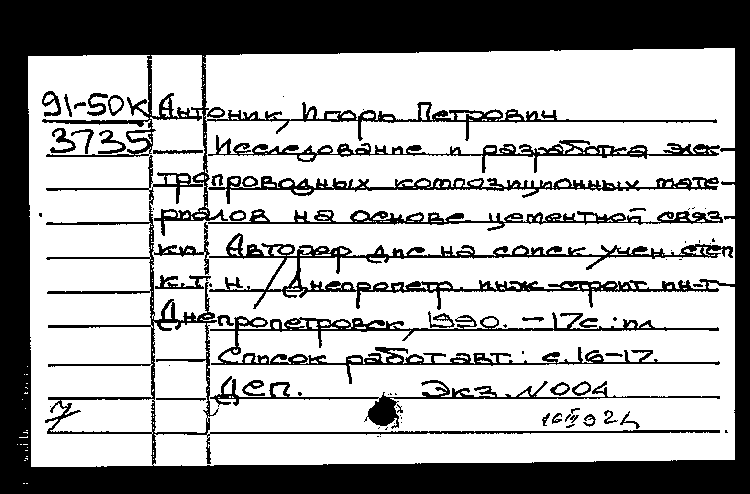 91-50К Антоник, Игорь Петрович
3735 Исследование и разработка элек-
тропроводных композиционных мате-
риалов на основе цементной связ-
ки. Автореф дис. на соиск учен. степ
к.т.н. / Днепропетр. инж.-строит. ин-т
Днепропетровск, 1990. - 17с.: ил.
Список работ авт.: с. 16-17.
ДСП. Экз. №004